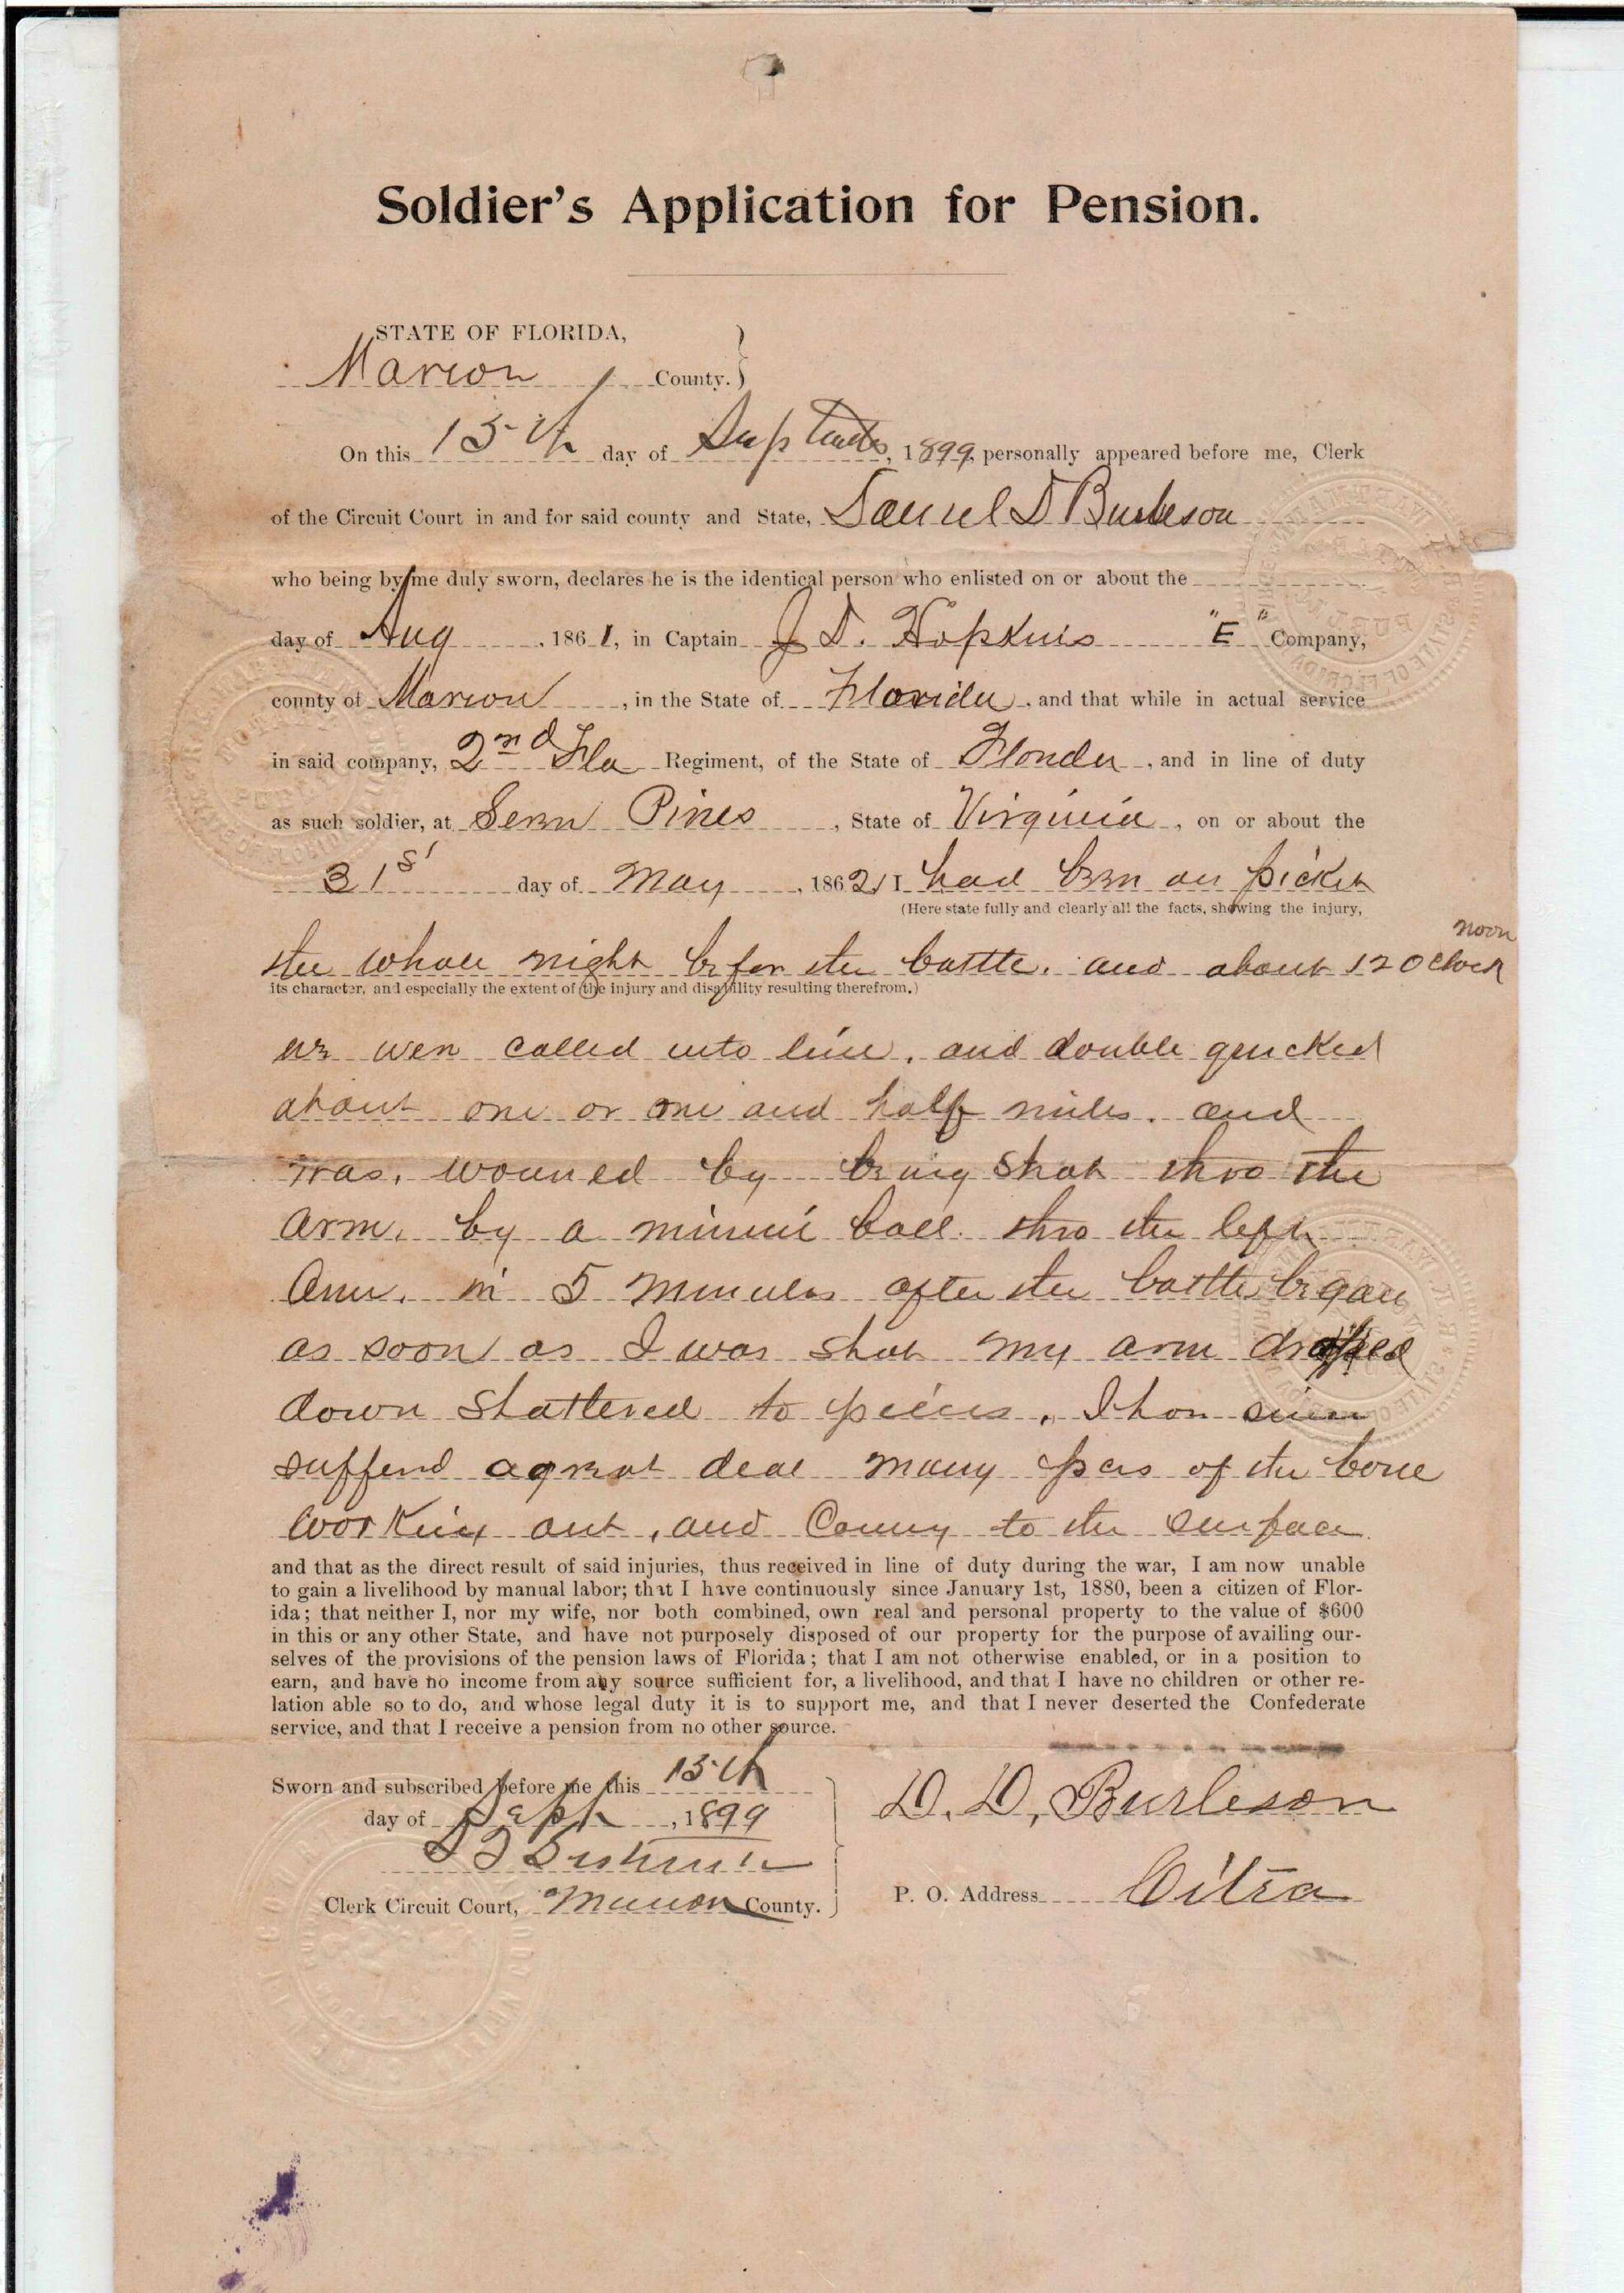 Soldier's Application for Pension.
STATE OF FLORIDA,
Marion County.
On this 15th day of September, 1899, personally appeared before me, Clerk
of the Circuit Court in and for said county and State, Samuel D Burleson
who being by me duly sworn, declares he is the identical person who enlisted on or about the
day of Aug, 1861, in Captain J D. Hopkins "E" Company,
county of Marion, in the State of Florida, and that while in actual service
in said company, 2nd Fla Regiment, of the State of Florida, and in line of duty
as such soldier, at Seven Pines, State of Virginia, on or about the
31st day of May, 1862, I had been on picket
(Here state fully and clearly all the facts, showing the injury,
noon
the whole night before the battle. and about 12 O Clock
its character, and especially the extent of the injury and disability resulting therefrom.)
we were called into line. and double quicked
about one or one and half miles. and
was. wouned by being shot thro the
arm. by a minnie ball. thro the left
arm. in 5 minutes after the battle began
as soon as I was shot my arm droped
down shattered to pieces. I have since
sufferd a great deal many pcs of the bone
working out, and coming to the surface.
and that as the direct result of said injuries, thus received in line of duty during the war, I am now unable
to gain a livelihood by manual labor; that I have continuously since January 1st, 1880, been a citizen of Flor-
ida; that neither I, nor my wife, nor both combined, own real and personal property to the value of $600
in this or any other State, and have not purposely disposed of our property for the purpose of availing our-
selves of the provisions of the pension laws of Florida; that I am not otherwise enabled, or in a position to
earn, and have no income from any source sufficient for, a livelihood, and that I have no children or other re-
lation able so to do, and whose legal duty it is to support me, and that I never deserted the Confederate
service, and that I receive a pension from no other source.
Sworn and subscribed before me this 15th
day of Sept, 1899
Clerk Circuit Court, Marion County.
D. D. Burleson
P. O. Address Citra